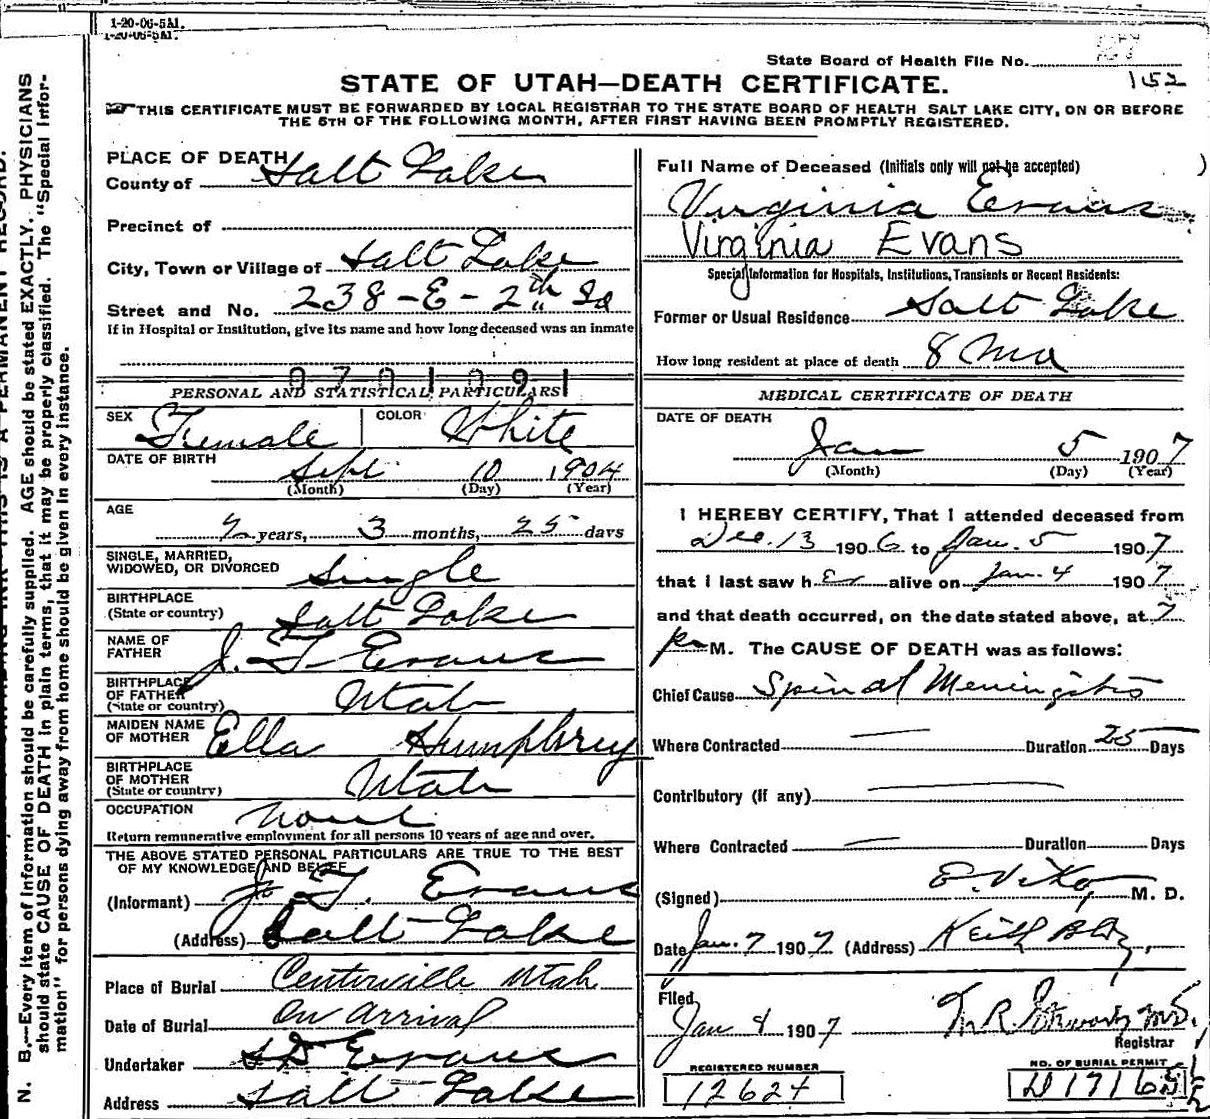 1-20-06-5M.
1-20-06-5M.
State Board of Health File No.
152
STATE OF UTAH—DEATH CERTIFICATE.
THIS CERTIFICATE MUST BE FORWARDED BY LOCAL REGISTRAR TO THE STATE BOARD OF HEALTH SALT LAKE CITY, ON OR BEFORE
THE 5TH OF THE FOLLOWING MONTH, AFTER FIRST HAVING BEEN PROMPTLY REGISTERED.
PLACE OF DEATH
County of Salt Lake
Precinct of
City, Town or Village of Salt Lake
Street and No. 238-E-2nd So
If in Hospital or Institution, give its name and how long deceased was an inmate
0701091
PERSONAL AND STATISTICAL PARTICULARS
SEX Female COLOR White
DATE OF BIRTH Sept 10 1904
(Month) (Day) (Year)
AGE
2 years, 3 months, 25 days
SINGLE, MARRIED,
WIDOWED, OR DIVORCED Single
BIRTHPLACE
(State or country) Salt Lake
NAME OF
FATHER J. T. Evans
BIRTHPLACE
OF FATHER
(State or country) Utah
MAIDEN NAME
OF MOTHER Ella Humphrey
BIRTHPLACE
OF MOTHER
(State or country) Utah
OCCUPATION None
Return remunerative employment for all persons 10 years of age and over.
THE ABOVE STATED PERSONAL PARTICULARS ARE TRUE TO THE BEST
OF MY KNOWLEDGE AND BELIEF
(Informant) J. T. Evans
(Address) Salt Lake
Place of Burial Centerville Utah
Date of Burial On Arrival
Undertaker S D Evans
Address Salt Lake
Full Name of Deceased (Initials only will not be accepted)
Virginia Evans
Virginia Evans
Special Information for Hospitals, Institutions, Transients or Recent Residents:
Former or Usual Residence Salt Lake
How long resident at place of death 8 Mo
MEDICAL CERTIFICATE OF DEATH
DATE OF DEATH
Jan 5 1907
(Month) (Day) (Year)
I HEREBY CERTIFY, That I attended deceased from
Dec. 13 1906 to Jan. 5 1907
that I last saw her alive on Jan. 4 1907
and that death occurred, on the date stated above, at 7
P M. The CAUSE OF DEATH was as follows:
Chief Cause Spinal Meningitis
Where Contracted Duration 25 Days
Contributory (if any)
Where Contracted Duration Days
(Signed) M. D.
Date Jan. 7 1907 (Address) Keith Bldg.
Filed
Jan 8 1907
Registrar
REGISTERED NUMBER
12624
NO. OF BURIAL PERMIT
N. B.—Every item of information should be carefully supplied. AGE should be stated EXACTLY. PHYSICIANS
should state CAUSE OF DEATH in plain terms, that it may be properly classified. The "Special Infor-
mation" for persons dying away from home should be given in every instance.